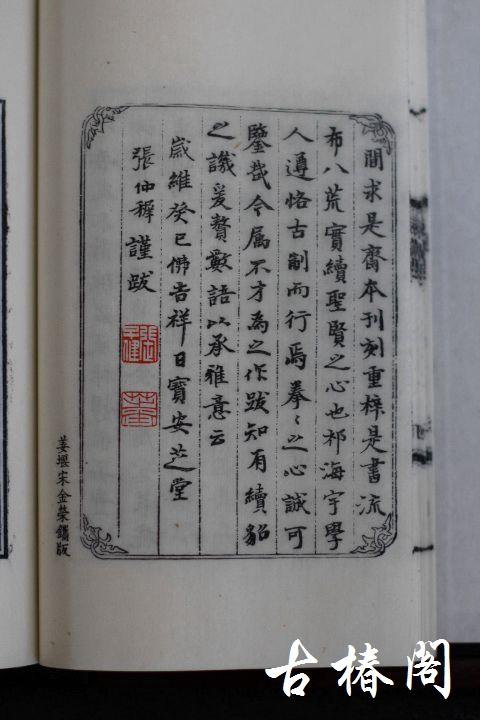 間求是齋本刊刻重梓是書流
布八荒實續聖賢之心也祁海宇學
人遵恪古制而行焉拳〻之心誠可
鑒哉今属不才為之作跋知有續貂
之譏爰贅數語以承雅意云
歲維癸巳佛吉祥日寶安芝堂
張仲穉謹跋
姜堰宋金榮鐫版
古椿閣